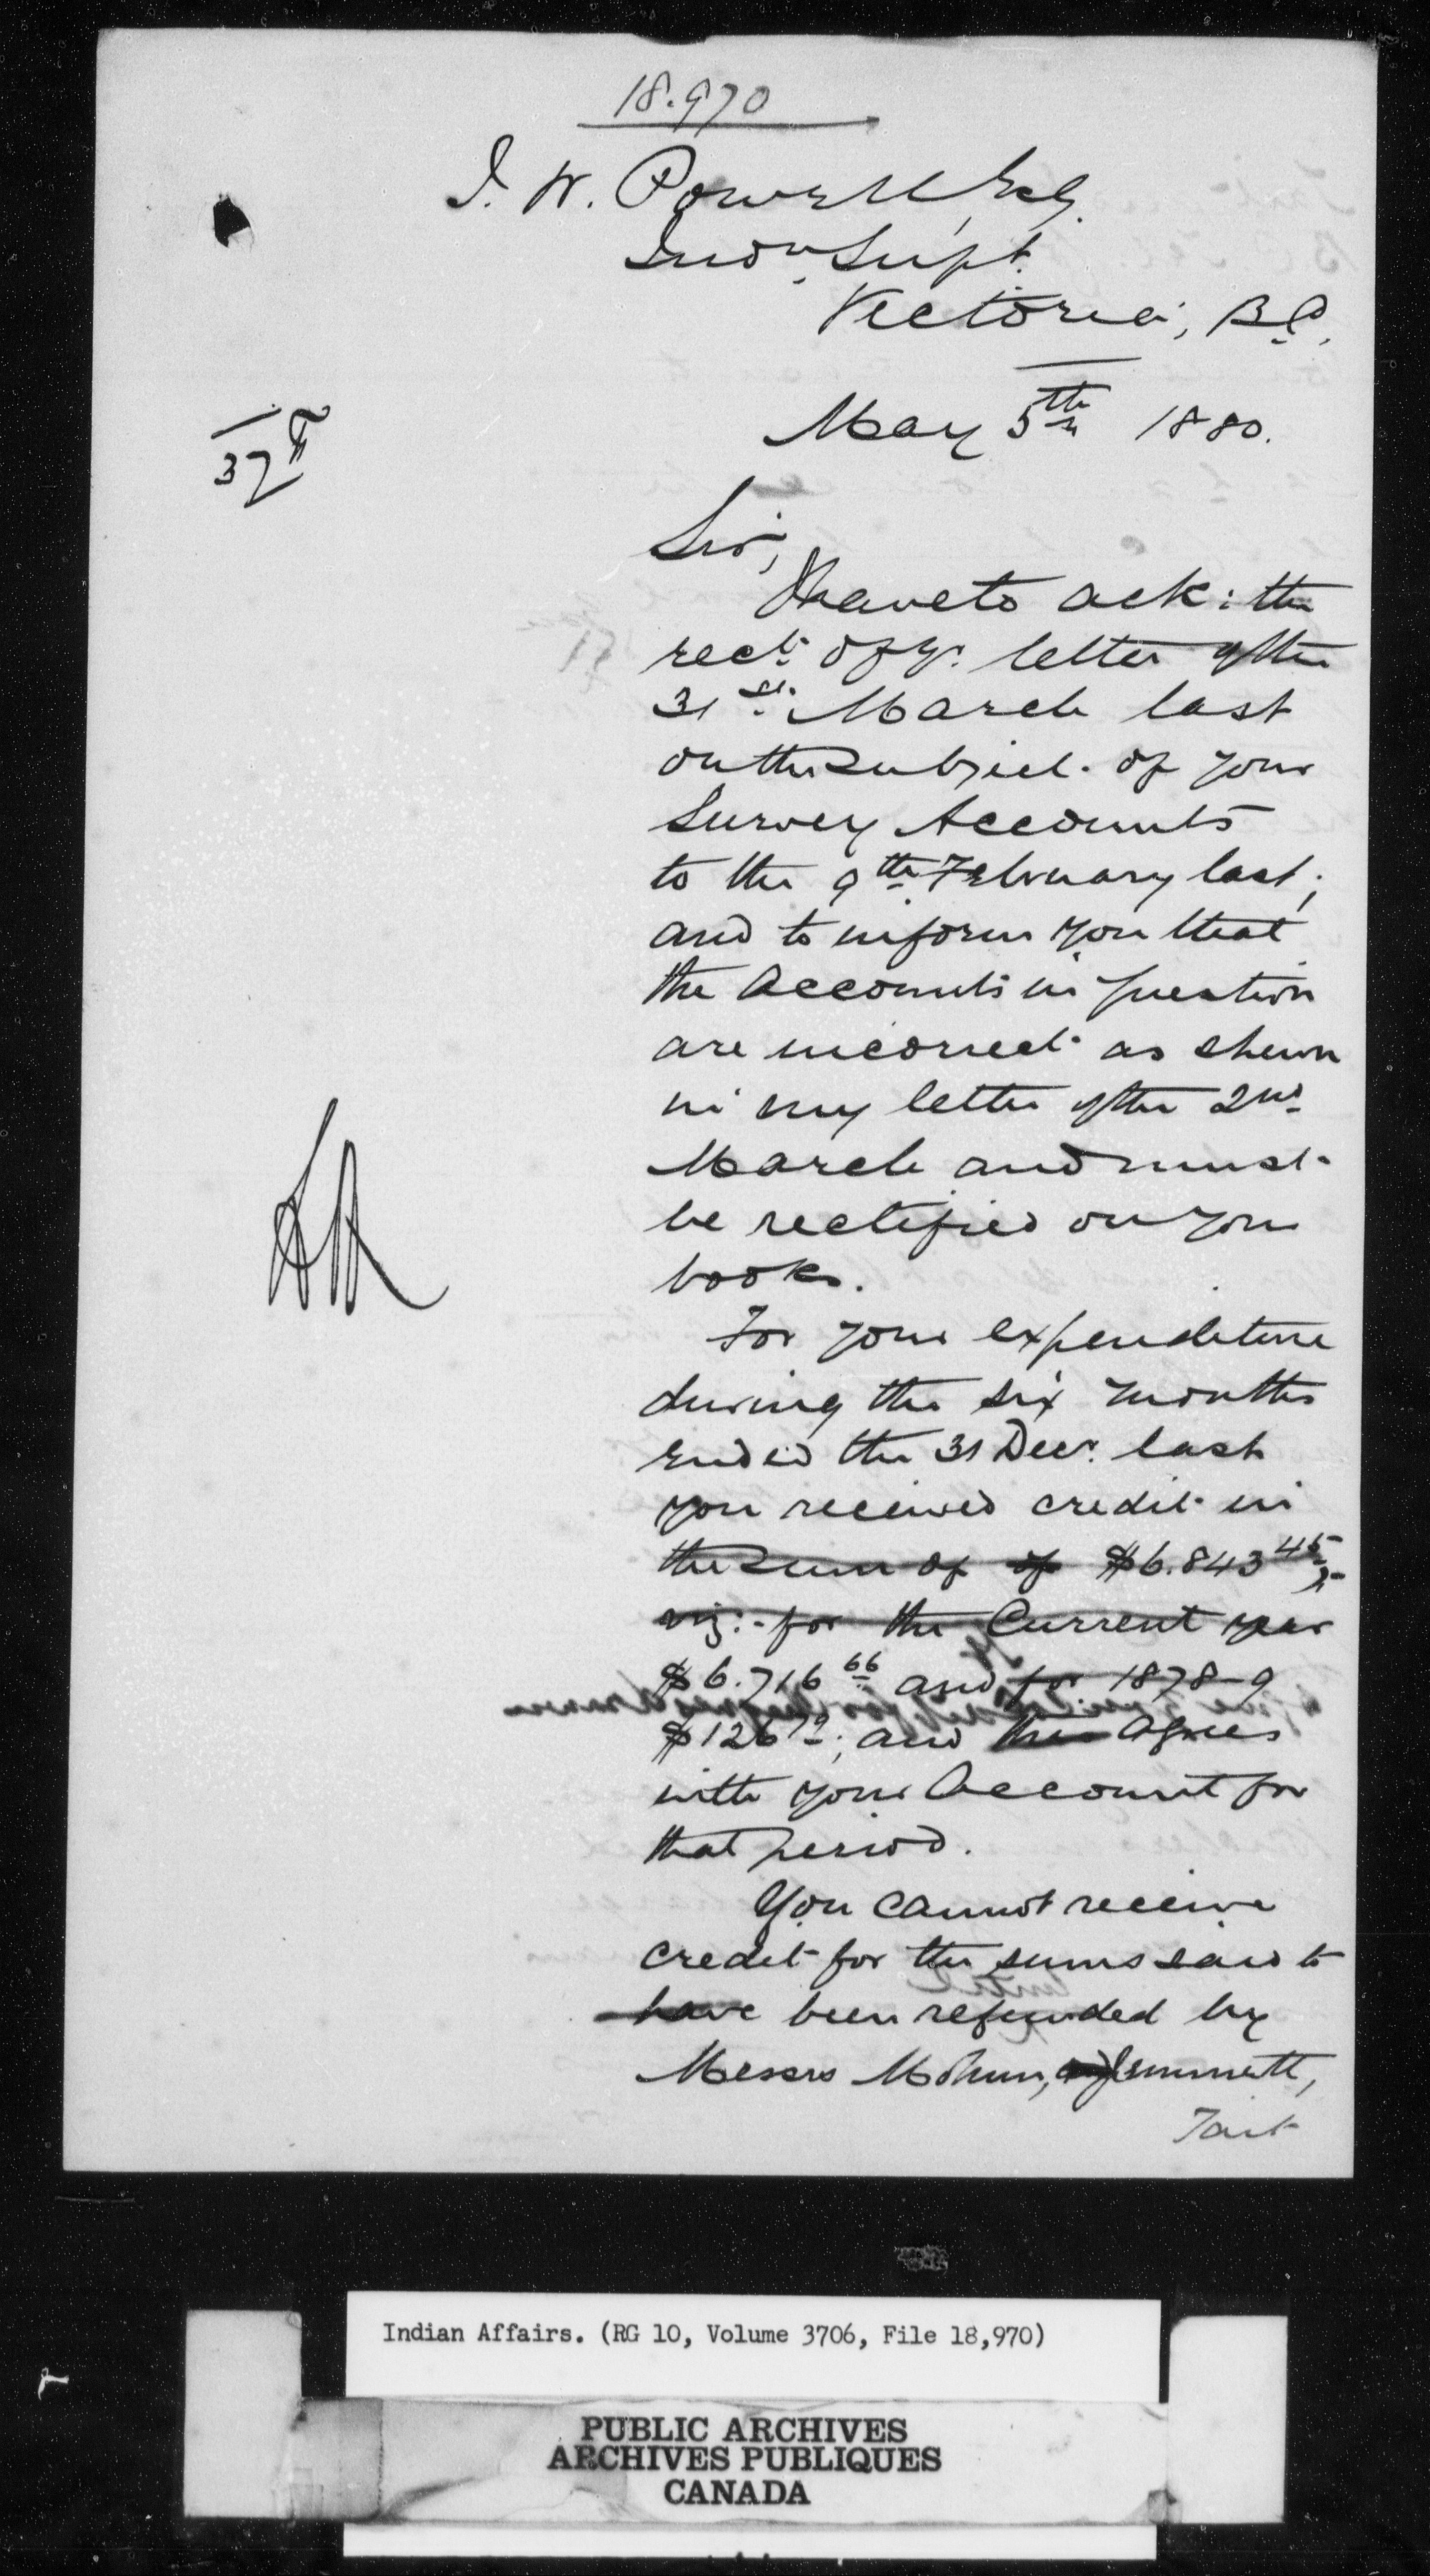 18.970
I. W. Powell, Esq.
Indn. Supt.
Victoria, B.C.
May 5th 1880.
37
Sir,
I have to ack: the
rect. of yr. letter of the
31st. March last
on the subject of your
Survey Accounts
to the 9th February last;
and to inform you that
the Accounts in question
are incorrect as shewn
in my letter of the 2nd
March and must
be rectified on your
books.
For your expenditure
during the six months
ended the 31 Decr. last
you received credit in
the sum of of $6.843 45
viz:- for the Current year
$6.716 66 and for 1878-9
$126 79; and this agrees
with your Account for
that period.
You cannot receive
credit for the sums said to
have been refunded by
Messrs Mohun, Jemmett,
Tait
Indian Affairs. (RG 10, Volume 3706, File 18,970)
PUBLIC ARCHIVES
ARCHIVES PUBLIQUES
CANADA